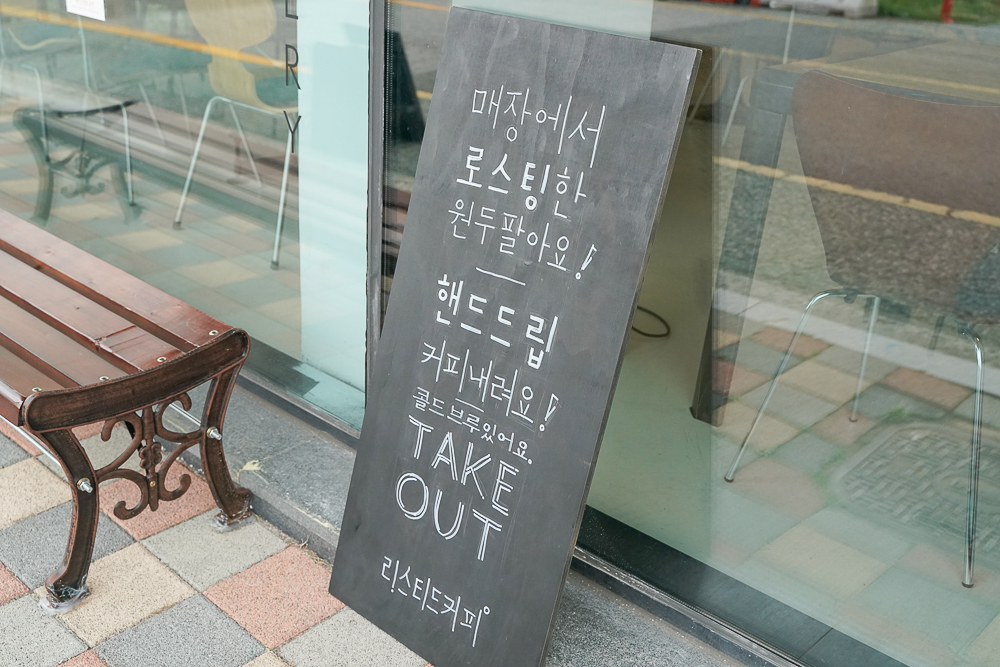 ERY
매장에서
로스팅한
원두팔아요!
핸드드립
커피내려요!
콜드브루있어요.
TAKE
OUT
리스티드커피